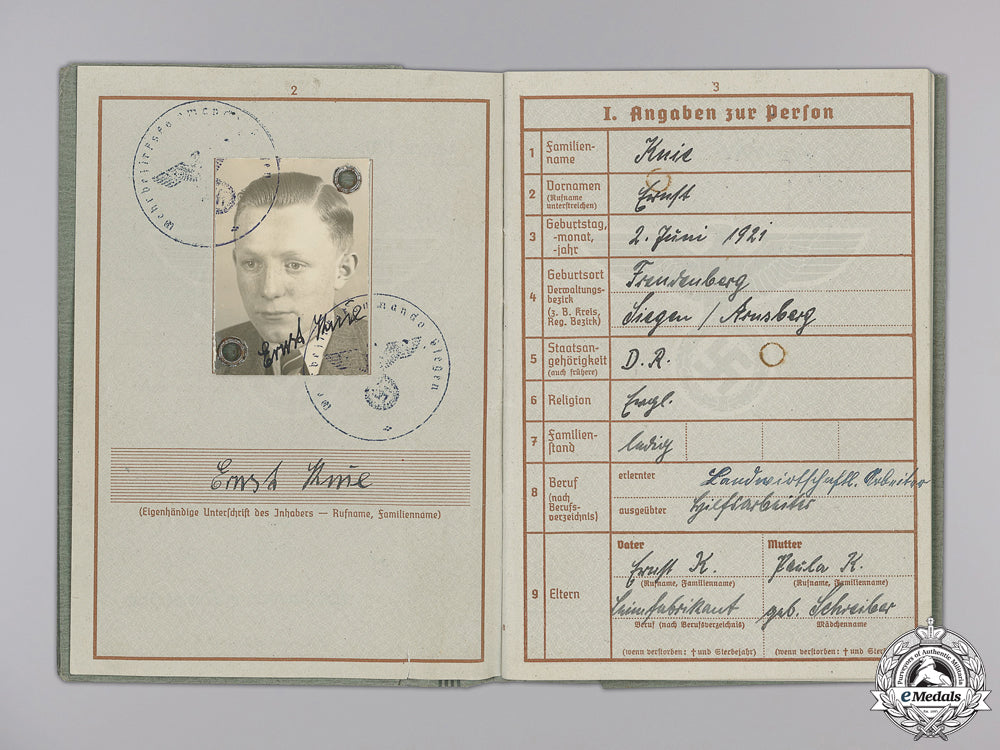 2
Wehrbezirkskommando Siegen
Ernst Knie
Wehrbezirkskommando Siegen
Ernst Knie
(Eigenhändige Unterschrift des Inhabers — Rufname, Familienname)
3
I. Angaben zur Person
1 Familien-
name
Knie
2 Vornamen
(Rufname
unterstreichen)
Ernst
3 Geburtstag,
-monat,
-jahr
2. Juni 1921
4 Geburtsort
Verwaltungs-
bezirk
(z. B. Kreis,
Reg. Bezirk)
Freudenberg
Siegen / Arnsberg
5 Staatsan-
gehörigkeit
(auch frühere)
D. R.
6 Religion
Evgl.
7 Familien-
stand
ledig
8 Beruf
(nach
Berufs-
verzeichnis)
erlernter
Landwirtschaftl. Arbeiter
ausgeübter
Hilfsarbeiter
9 Eltern
Vater Mutter
Ernst K. Paula K.
(Rufname, Familienname) (Rufname, Familienname)
Leimfabrikant geb. Schreiber
Beruf (nach Berufsverzeichnis) Mädchenname
(wenn verstorben: † und Sterbejahr) (wenn verstorben: † und Sterbe
Purveyors of Authentic Militaria
eMedals